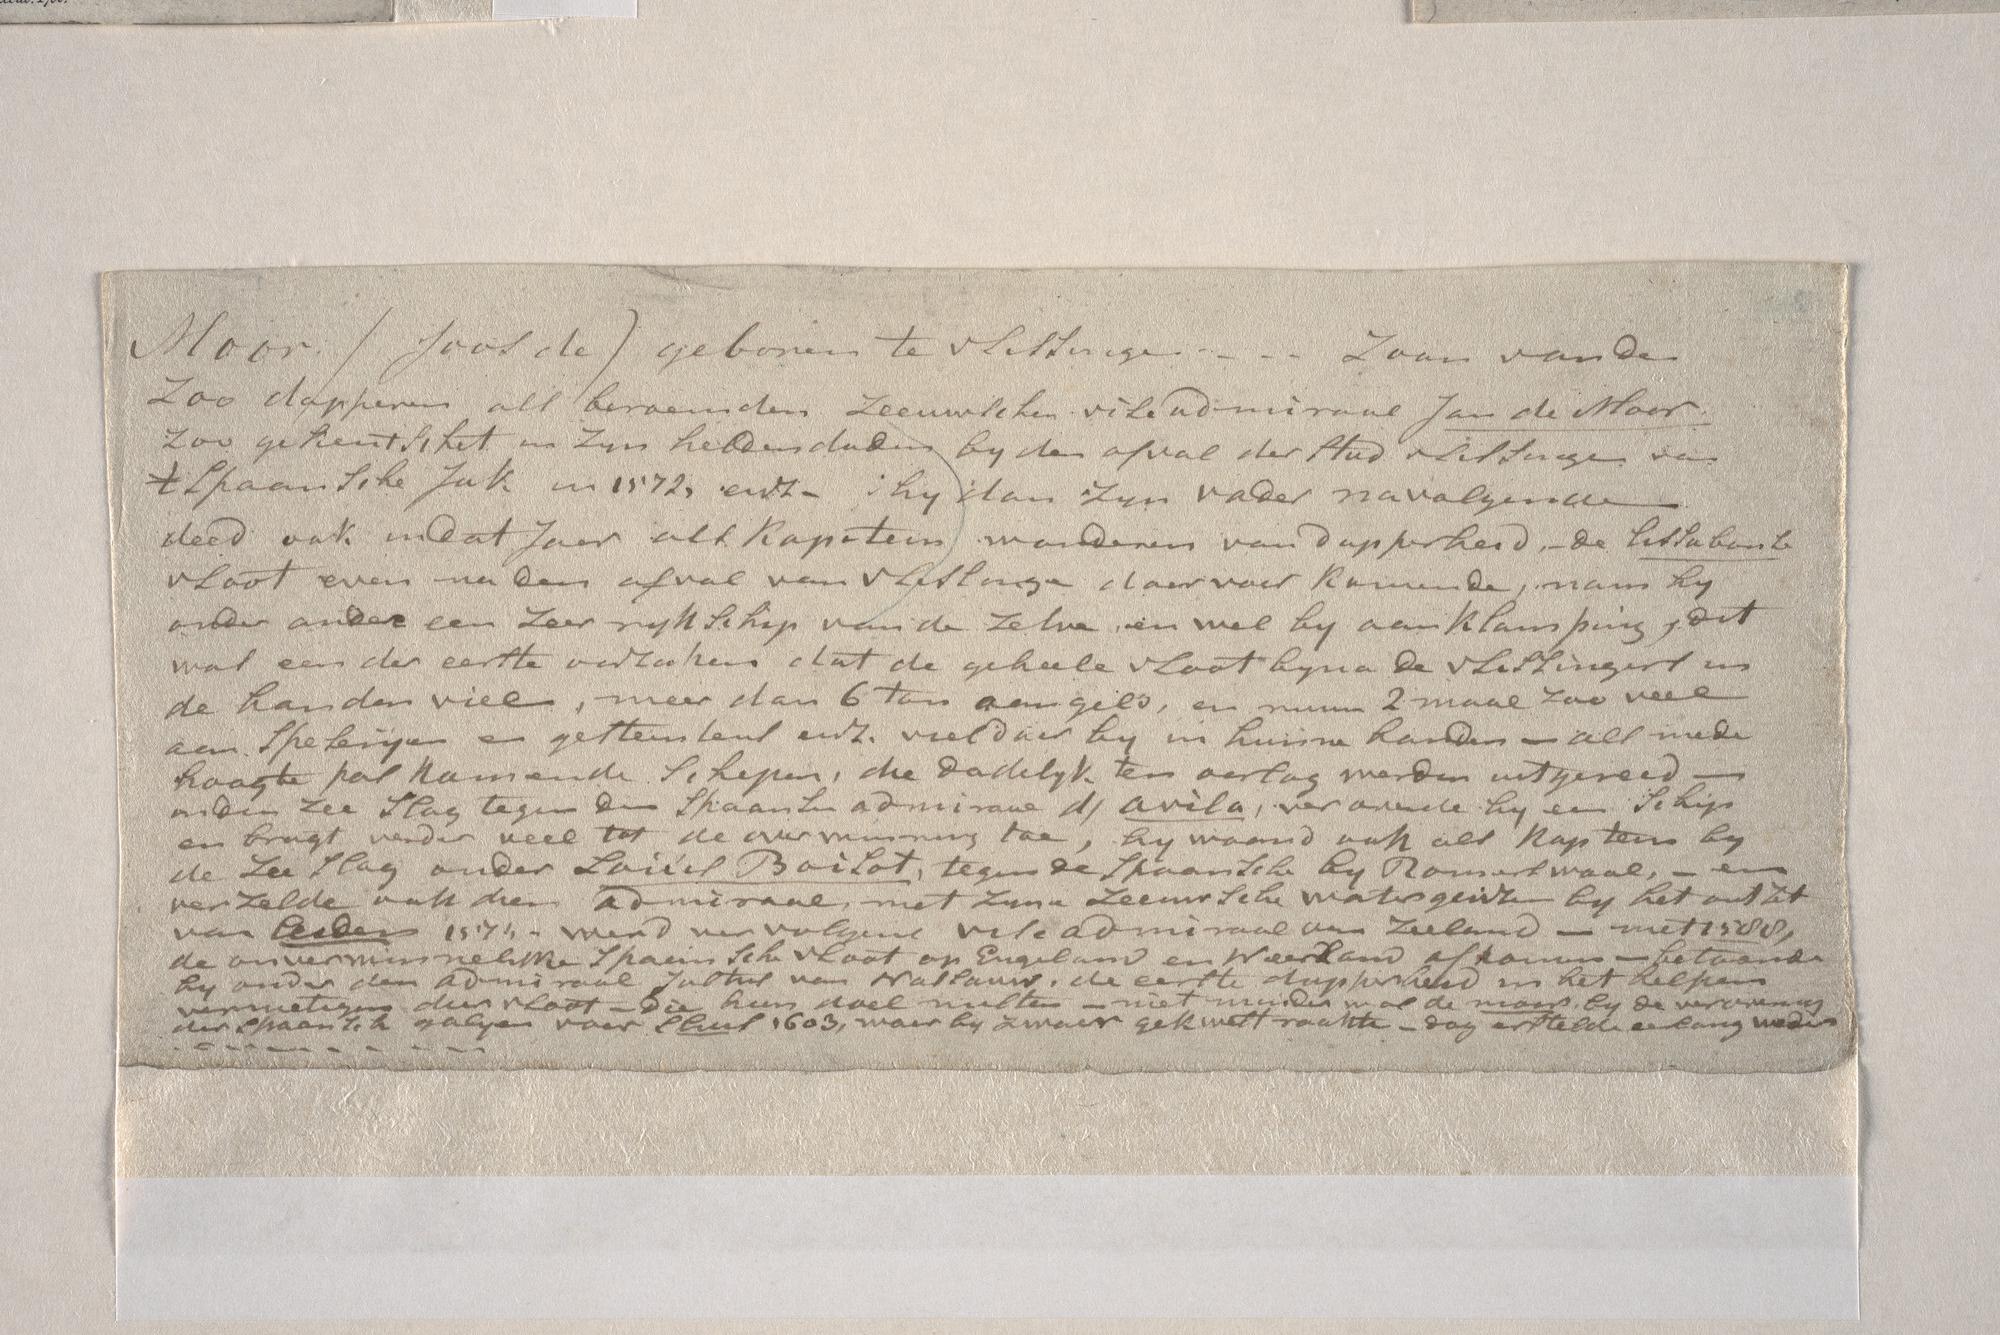 Moor. (Joos de) geboren te vlissinge - - - - Zoon van den
Zoo dapperen als beroemden Zeeuwschen vise admiraal Jan de Moor.
Zoo gekentschet in Zyn heldendaden by den afval der stad vlissinge van
t Spaansche Juk in 1572, enz. - hy dan Zyn vader navolgende
deed ook in dat Jaar als Kapitein wonderen van dapperheid, - de lissabonse
vloot even na den afval van vlissinge daer voor Komende, nam hy
onder andere een Zeer ryk Schip van de Zelve, en wel by aanklamping, dit
was een der eerste oorzaken dat de geheele vloot byna de vlissingers in
de handen viel, meer dan 6 ton aan geld, en ruim 2 maal Zoo veel
aan Speseryen en gesteentens enz. viel daer by in hunne handen - als mede
hoogte pas Komende Schepen, die dadelyk ten oorlog werden uitgereed -
in den Zee Slag tegen den Spaansen admiraal d' avila, veroverde hy een Schip
en bragt verder veel tot de overwinning toe, hy woond ook als Kaptein by
de Zee Slag onder Louis Boisot, tegen de Spaansche by Romerswaal, - en
verzelde ook dien admiraal, met Zyne Zeeuwsche watergeuzen by het ontzet
van Leiden 1574. - werd vervolgens vise admiraal van Zeeland - met 1588,
de onverwinnelikke Spaansche vloot op Engeland en Neerland afkomen - betoonde
hy onder den admiraal Justus van Nassauw, de eerste dapperheid in het helpen
vernietigen dier vloot - die hun doel misten - niet minder was de moor by de verovering
der Spaansche galyen voor Sluis 1603, waer hy zwaer gekwetst raakte - dog herstelde eerlang weder
- - - - - - - -